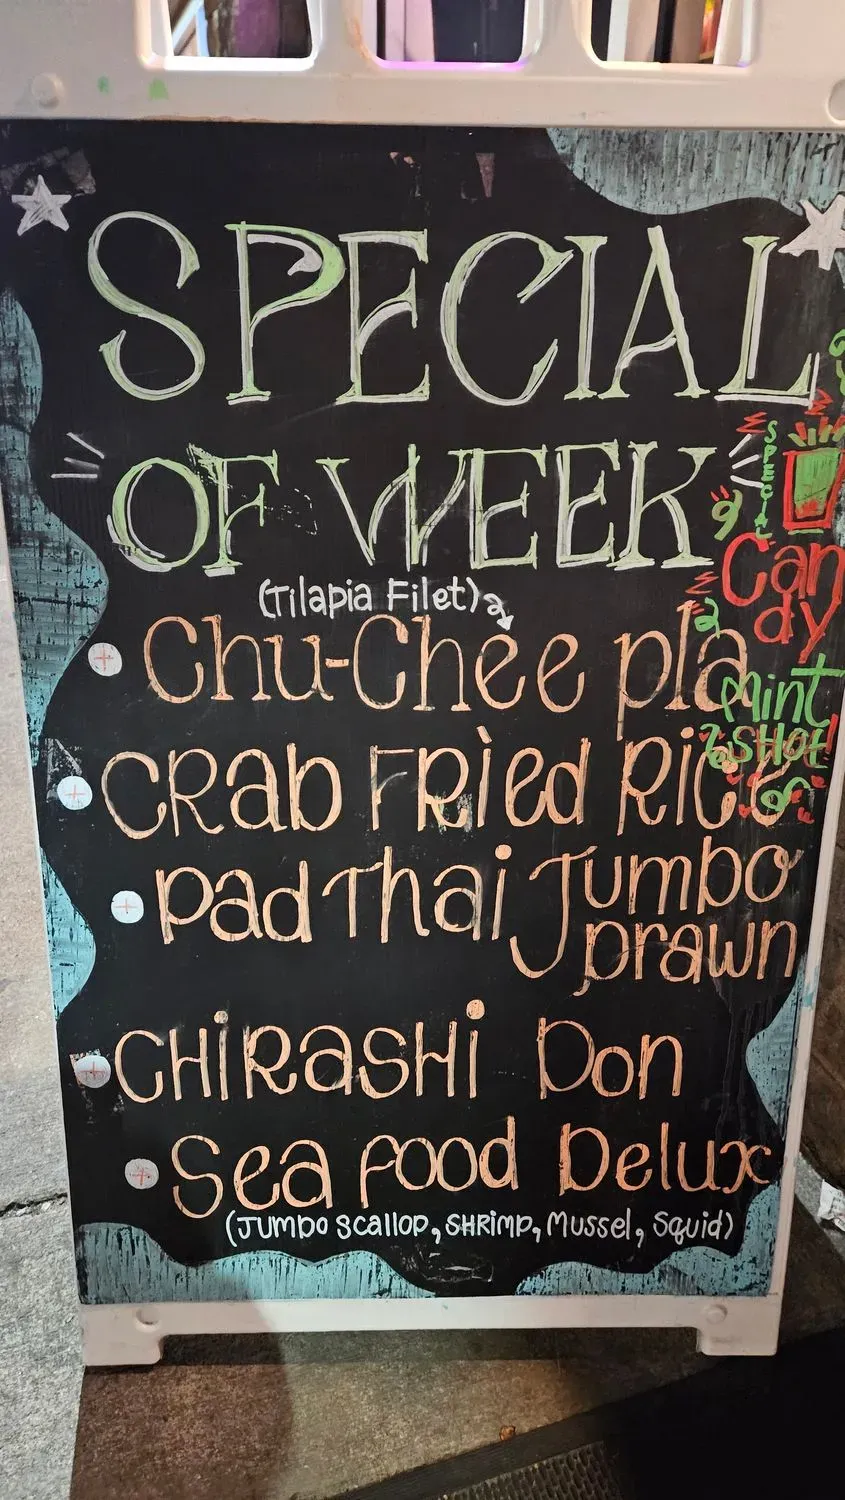 SPECIAL
OF WEEK
(Tilapia Filet)
Chu-Chee pla
CRab Fried Rice
Pad Thai Jumbo
prawn
CHiRasHi Don
Sea food Delux
(Jumbo scallop, SHRimp, Mussel, Squid)
SPECIAL
Can
dy
Mint
SHot!